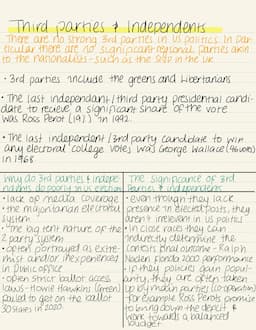 Third parties & Independents
There are no strong 3rd parties in US politics. In par-
ticular there are no significant regional parties akin
to the nationalists - such as the SNP in the UK
• 3rd parties include the greens and Libertarians
• The last independant/third party presidential candi-
date to recieve a significant share of the vote
was Ross Perot (19%) in 1992.
• The last independent/3rd party candidate to win
any electoral college votes was George Wallace (46 votes)
in 1968
Why do 3rd parties & indepe
ndents do poorly in US elections
• lack of media coverage
• the majoritarian electoral
system
• The big tent nature of the
2 party system
• often portrayed as extre-
mist and/or inexperienced
in public office
• often strict ballot access
laws - Howie Hawkins (Green)
failed to get on the ballot
30 states in 2020
The significance of 3rd
Parties & independents
• even though they lack
presence in elected posts, they
aren't irrelevant in US politics
• In close races they can
indirectly determine the
contests final outcome - Ralph
Nader, florida 2000 performance
• If they policies gain popul-
arity, they are often taken
up by main parties (co-opetation)
for example Ross Perots promise
to bring down the deficit &
work towards a balanced
budget